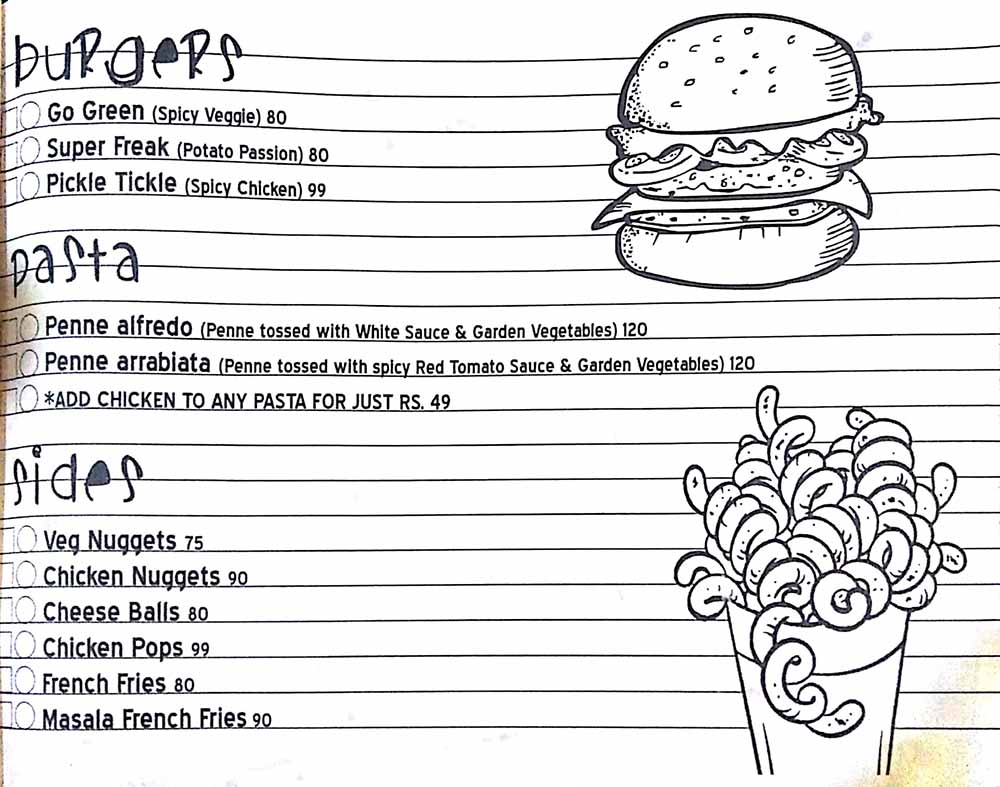 burgers
Go Green (Spicy Veggie) 80
Super Freak (Potato Passion) 80
Pickle Tickle (Spicy Chicken) 99
pasta
Penne alfredo (Penne tossed with White Sauce & Garden Vegetables) 120
Penne arrabiata (Penne tossed with spicy Red Tomato Sauce & Garden Vegetables) 120
*ADD CHICKEN TO ANY PASTA FOR JUST RS. 49
sides
Veg Nuggets 75
Chicken Nuggets 90
Cheese Balls 80
Chicken Pops 99
French Fries 80
Masala French Fries 90